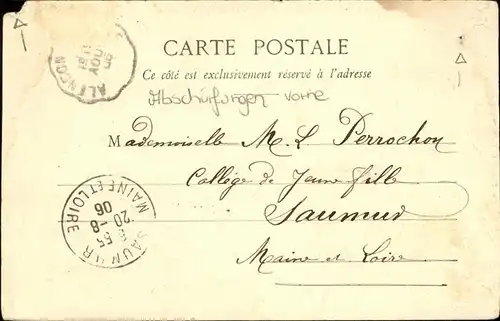 ALENÇON
AOU
06
CARTE POSTALE
Ce côté est exclusivement réservé à l'adresse
Abschürfungen vorne
Mademoiselle M. L Perrochon
Collége de Jeune fille
Saumur
Maine et Loire
SAUMUR
MAINE ET LOIRE
20 - 8
06